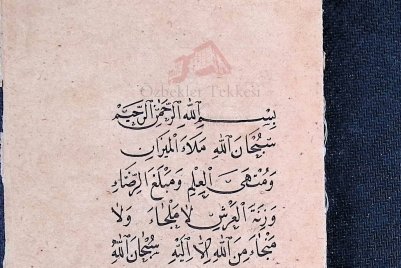 Özbekler Tekkesi
بِسْمِ اللهِ الرَّحْمٰنِ الرَّحِيْمِ
سُبْحَانَ اللهِ مَلَاءَ الْمِيْزَانِ
وَمُنْتَهَى الْعِلْمِ وَمَبْلَغَ الرِّضَاءِ
وَزِنَةَ الْعَرْشِ لَا مَلْجَاءَ وَلَا
مَنْجَاءَ مِنَ اللهِ اِلَّا اِلَيْهِ سُبْحَانَ اللهِ